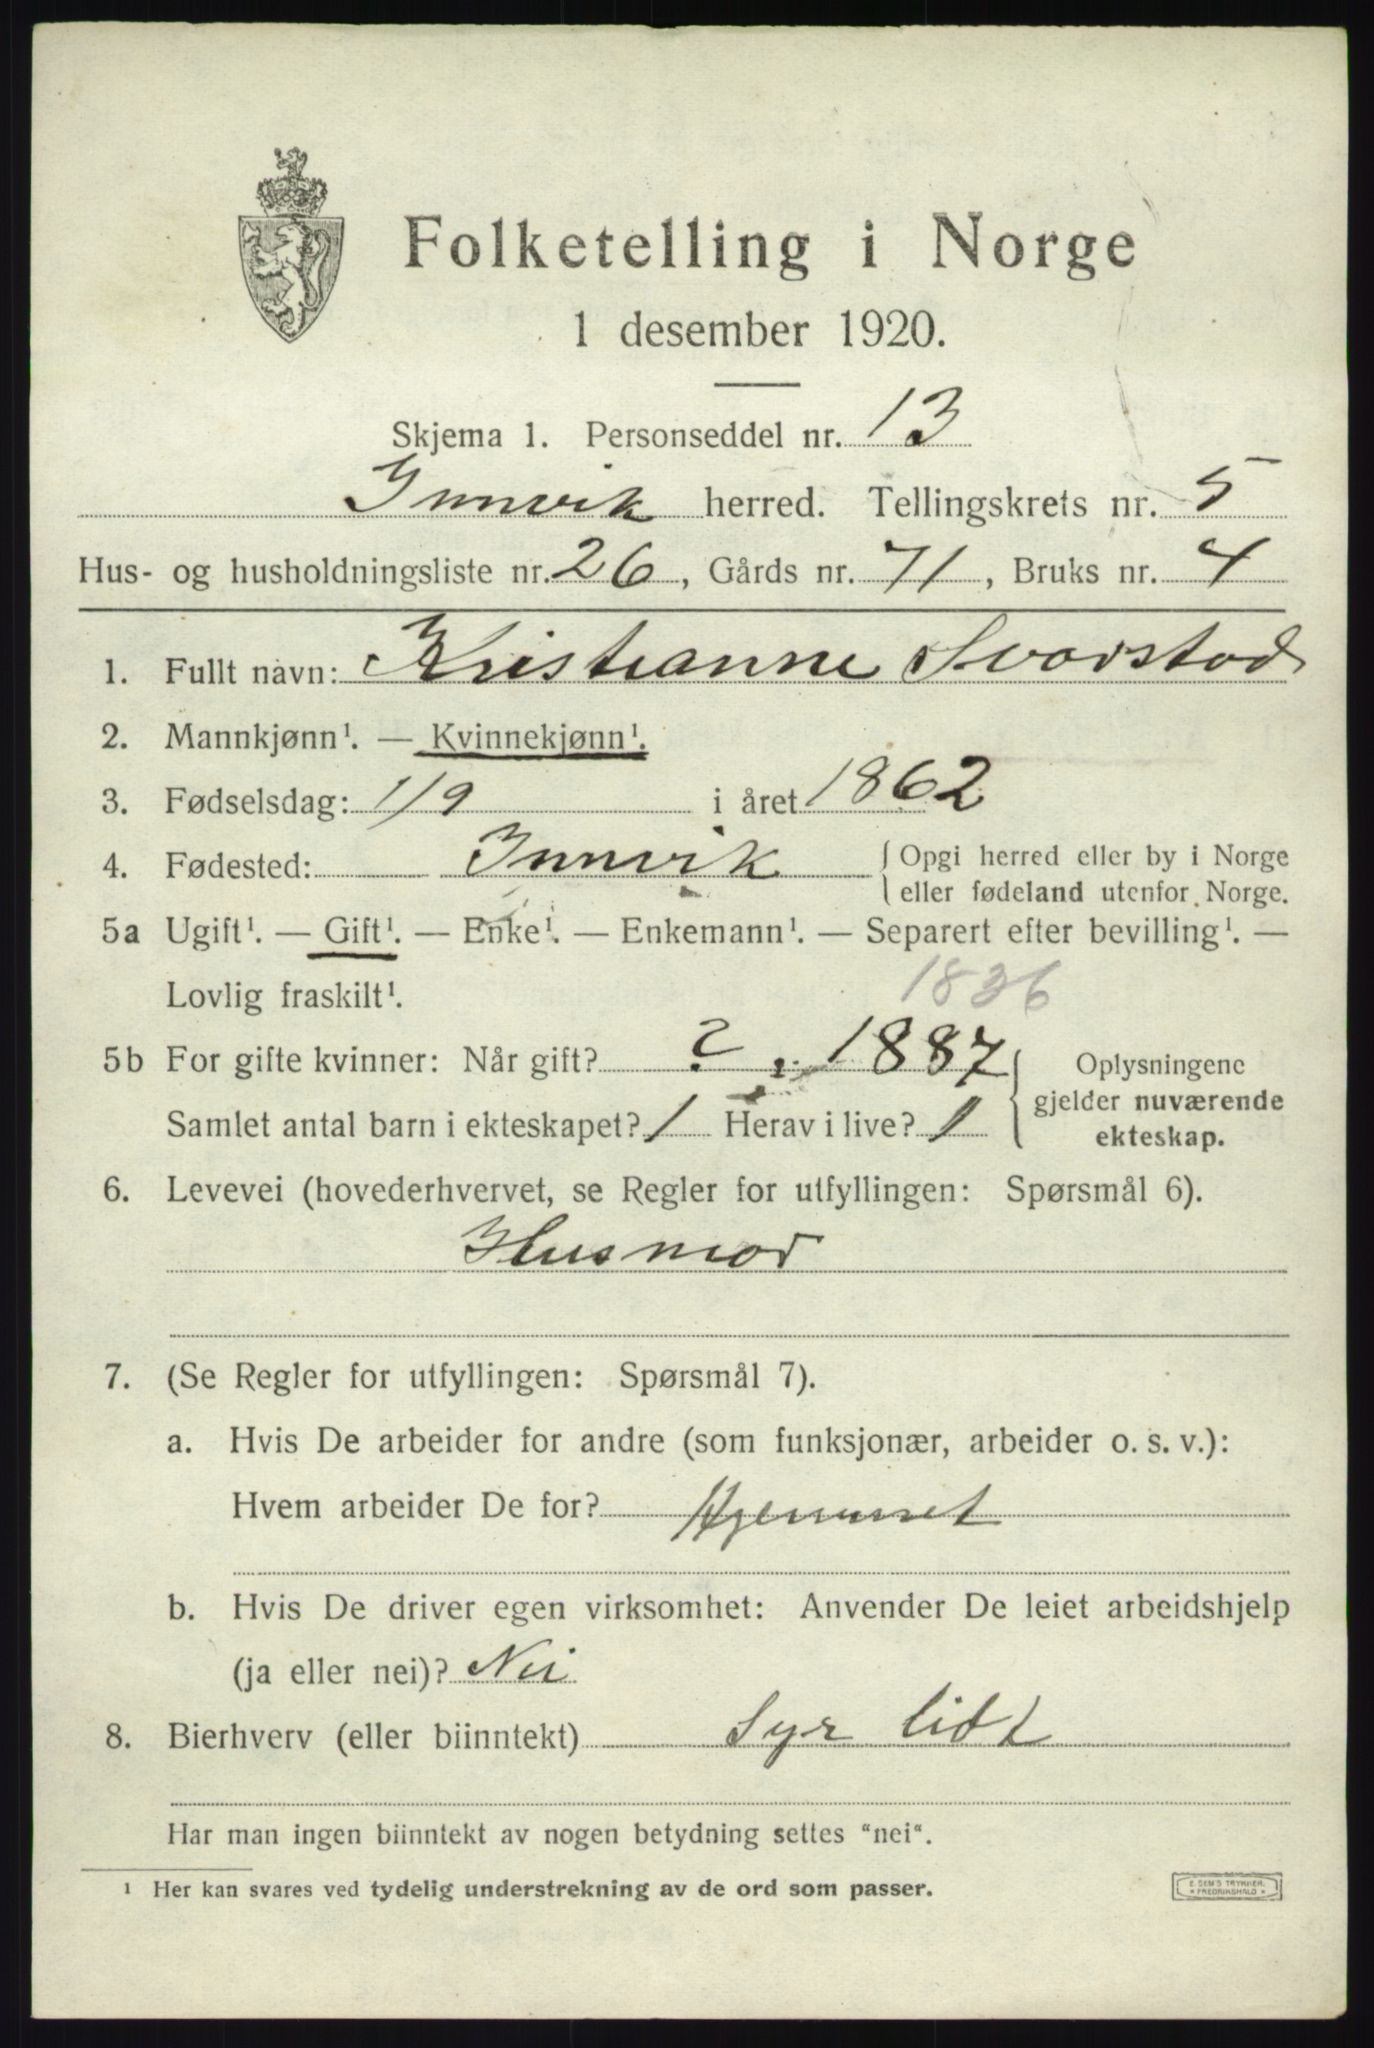 Folketelling i Norge
1 desember 1920.
Skjema 1. Personseddel nr. 13
Innvik herred. Tellingskrets nr. 5
Hus- og husholdningsliste nr. 26, Gårds nr. 71, Bruks nr. 4
1. Fullt navn: Kristianne Svorstad
2. Mannkjønn¹. — Kvinnekjønn¹.
3. Fødselsdag: 1/9 i året 1862
4. Fødested: Innvik { Opgi herred eller by i Norge
eller fødeland utenfor Norge.
5a Ugift¹. — Gift¹. — Enke¹. — Enkemann¹. — Separert efter bevilling¹. —
Lovlig fraskilt¹.
1836
5b For gifte kvinner: Når gift? ? 1887
Samlet antal barn i ekteskapet? 1 Herav i live? 1
Oplysningene
gjelder nuværende
ekteskap.
6. Levevei (hovederhvervet, se Regler for utfyllingen: Spørsmål 6).
Husmor
7. (Se Regler for utfyllingen: Spørsmål 7).
a. Hvis De arbeider for andre (som funksjonær, arbeider o. s. v.):
Hvem arbeider De for? Hjemmet
b. Hvis De driver egen virksomhet: Anvender De leiet arbeidshjelp
(ja eller nei)? Nei
8. Bierhverv (eller biinntekt) Syr lidt
Har man ingen biinntekt av nogen betydning settes "nei".
¹ Her kan svares ved tydelig understrekning av de ord som passer.
E. SEM'S TRYKKERI.
* FREDRIKSHALD *